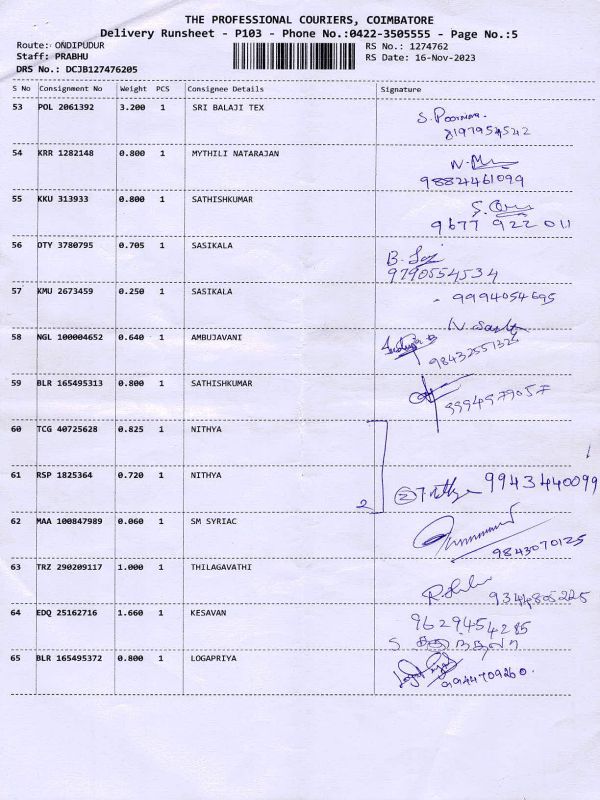 THE PROFESSIONAL COURIERS, COIMBATORE
Delivery Runsheet - P103 - Phone No.:0422-3505555 - Page No.:5
Route: ONDIPUDUR RS No.: 1274762
Staff: PRABHU RS Date: 16-Nov-2023
DRS No.: DCJB127476205
S No Consignment No Weight PCS Consignee Details Signature
53 POL 2061392 3.200 1 SRI BALAJI TEX
S. Poornima.
8197954542
54 KRR 1282148 0.800 1 MYTHILI NATARAJAN
9882461099
55 KKU 313933 0.800 1 SATHISHKUMAR
9677 922 011
56 OTY 3780795 0.705 1 SASIKALA
9790554534
57 KMU 2673459 0.250 1 SASIKALA
9994054695
58 NGL 100004652 0.640 1 AMBUJAVANI
59 BLR 165495313 0.800 1 SATHISHKUMAR
9994979057
60 TCG 40725628 0.825 1 NITHYA
61 RSP 1825364 0.720 1 NITHYA
2 2 9943440099
62 MAA 100847989 0.060 1 SM SYRIAC
9843070125
63 TRZ 290209117 1.000 1 THILAGAVATHI
9344805225
64 EDQ 25162716 1.660 1 KESAVAN
9629454285
65 BLR 165495372 0.800 1 LOGAPRIYA
9944709260.